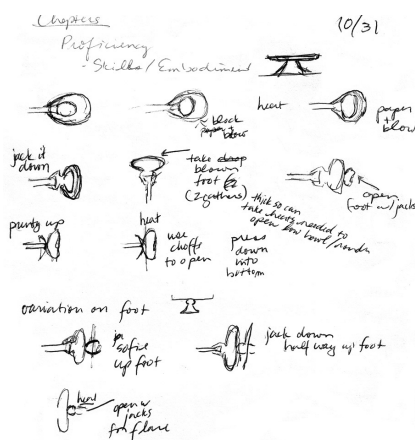 Chapters
10/31
Proficiency
- Skills/Embodiment
block
paper +
blow
heat
paper
+
blow
jack it
down
take
blown
foot
(2 gathers)
thick so can
take heats needed to
open low bowl/
open
foot w/jacks
punty up
heat
use
to open
press
down
into
bottom
variation on foot
up foot
jack down
half way up foot
heat
open w
jacks
for flare